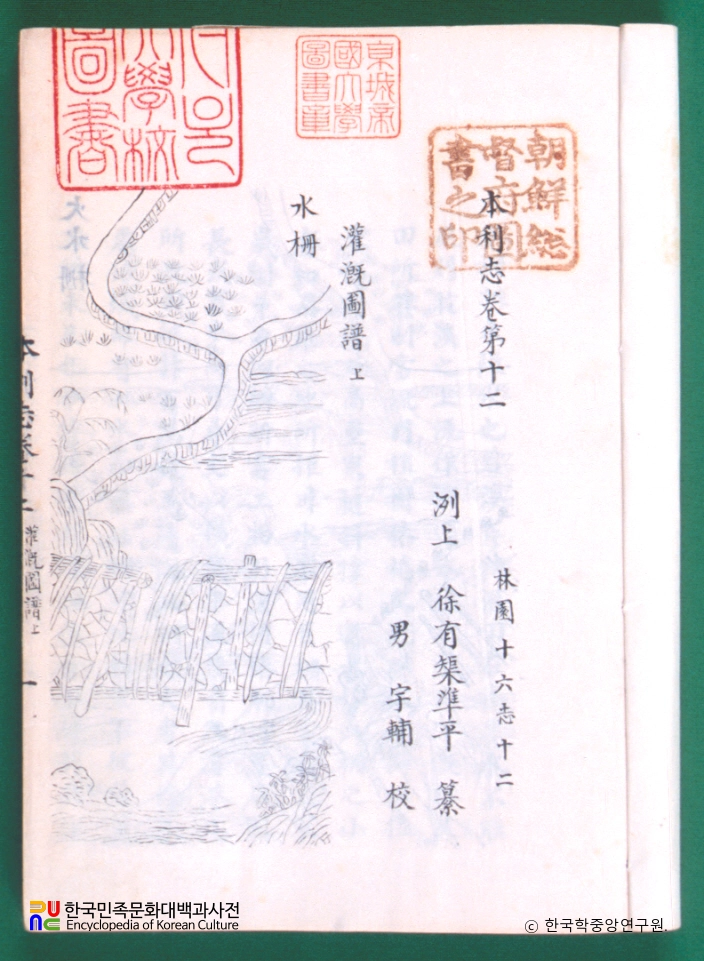 本利志卷第十二
林園十六志十二
洌上 徐有榘準平 纂
男 宇輔 校
灌漑圖譜 上
水柵
朝鮮総
督府圖
書之印
京城帝
國大學
圖書章
大學校
圖書
本利志卷十二 灌漑圖譜上 一
한국민족문화대백과사전
Encyclopedia of Korean Culture
© 한국학중앙연구원.